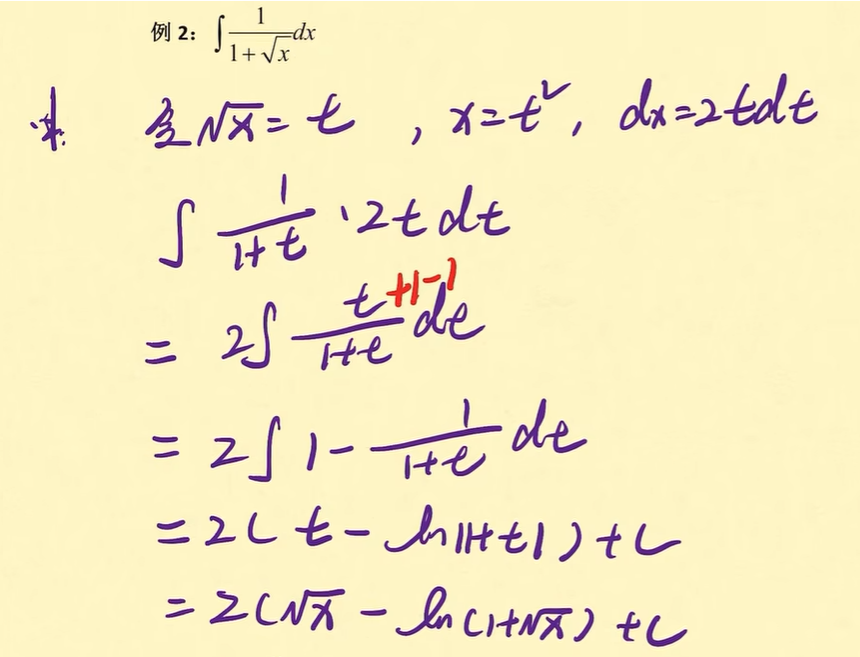 例 2： ∫ 1/(1+√x) dx
求. 令√x = t , x=t², dx=2tdt
∫ 1/(1+t) · 2t dt
= 2∫ (t+1-1)/(1+t) dt
= 2∫ 1 - 1/(1+t) dt
= 2( t - ln|1+t| ) + C
= 2(√x - ln(1+√x) + C